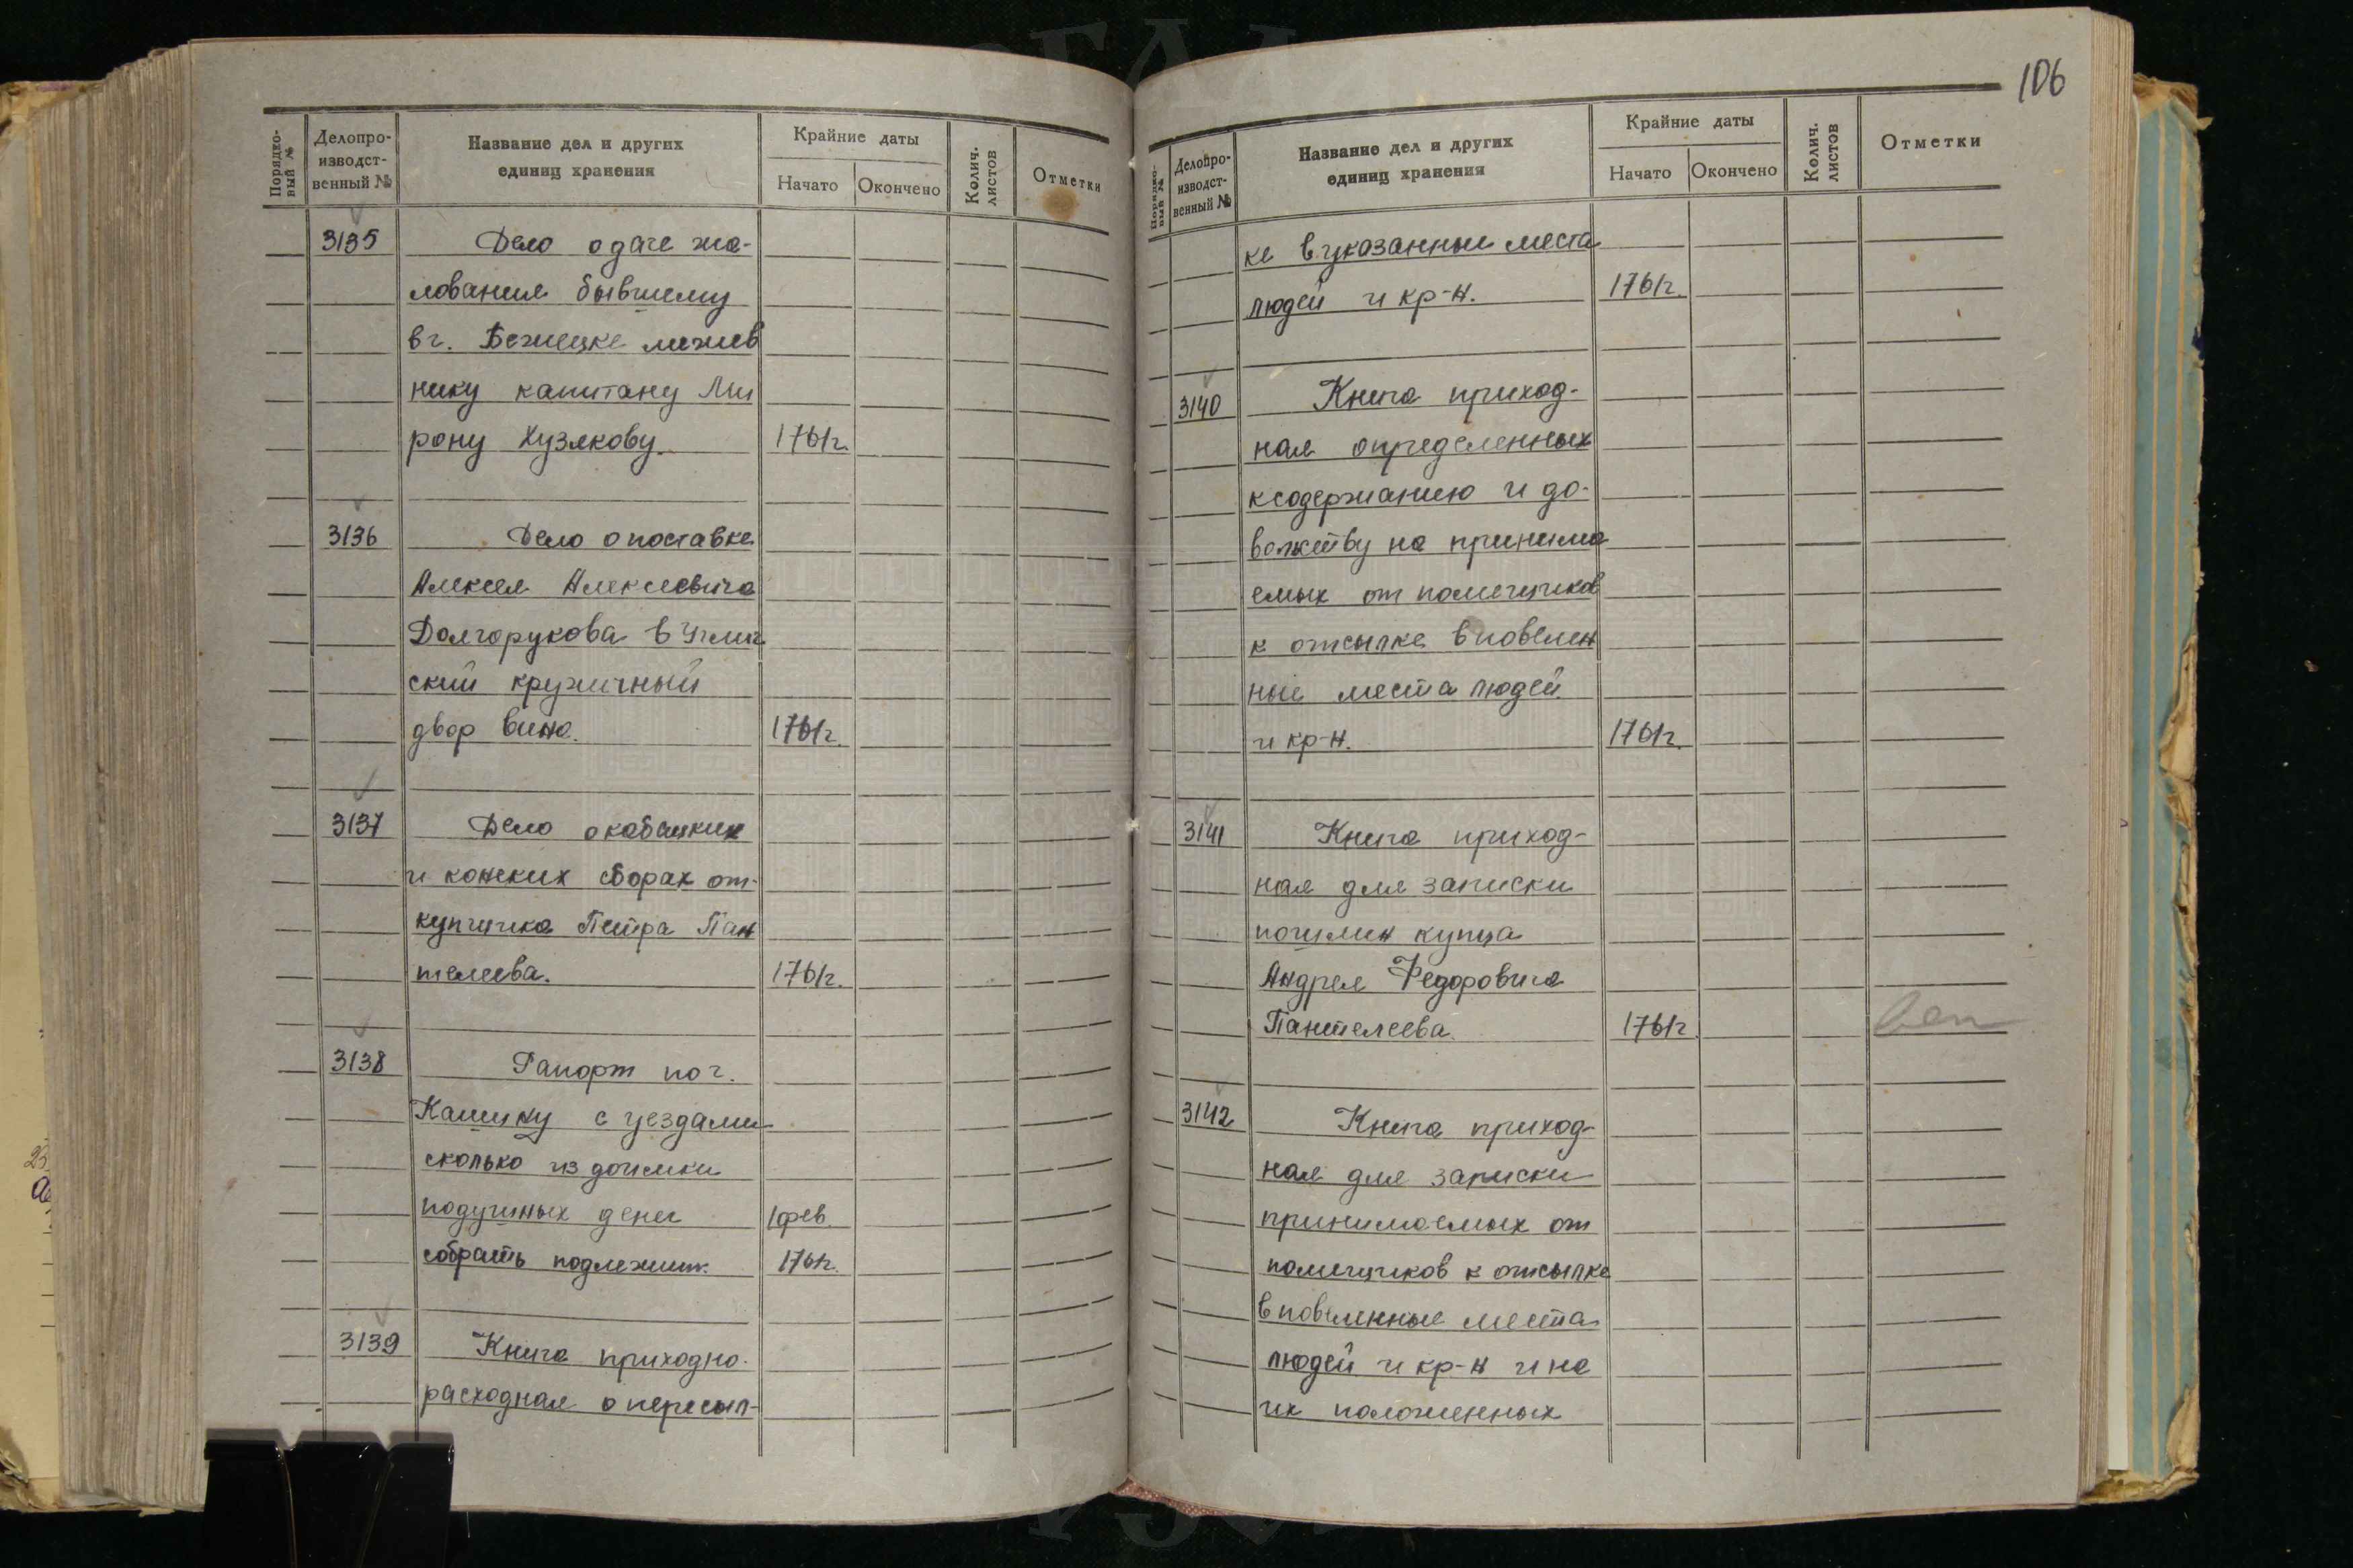 106
Порядко-
вый №
Делопро-
изводст-
венный №
Название дел и других
единиц хранения
Крайние даты
Начато
Окончено
Колич.
листов
Отметки
3135 Дело о даче жа-
лования бывшему
в г. Бежецке межев
нику капитану Ми
рону Хузякову. 1761г.
3136 Дело о поставке
Алексея Алексеевича
Долгорукова в Углич
ский кружечный
двор вина. 1761г.
3137 Дело о кабацких
и конских сборах от-
купщика Петра Пан
телеева. 1761г.
3138 Рапорт по г.
Кашину с уездами
сколько из доимки
подушных денег 1 фев.
собрать подлежит. 1761г.
3139 Книга приходно-
расходная о пересыл-
Порядко-
вый №
Делопро-
изводст-
венный №
Название дел и других
единиц хранения
Крайние даты
Начато
Окончено
Колич.
листов
Отметки
ке в указанные места
людей и кр-н. 1761г.
3140 Книга приход-
ная определенных
к содержанию и до-
вольству на принима
емых от помещиков
к отсылке в повелен
ные места людей
и кр-н. 1761г.
3141 Книга приход-
ная для записки
пошлин купца
Андрея Федоровича
Пантелеева. 1761г.
3142 Книга приход-
ная для записки
принимаемых от
помещиков к отсылке
в повеленные места
людей и кр-н и на
их положенных